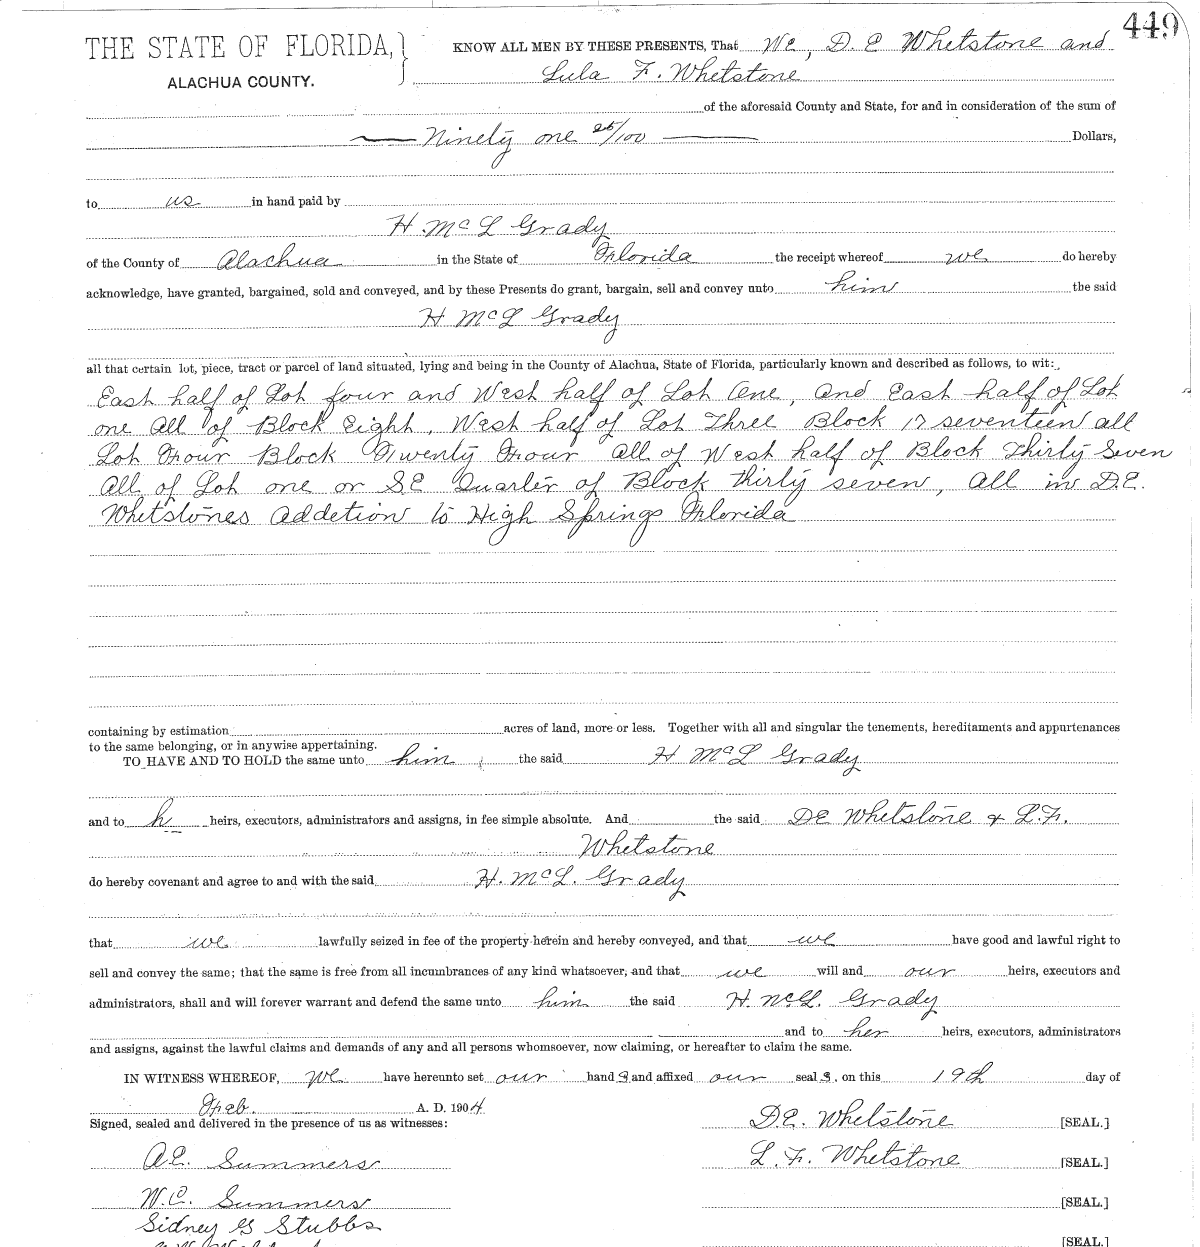 449
THE STATE OF FLORIDA, } KNOW ALL MEN BY THESE PRESENTS, That We, D. E Whetstone and
ALACHUA COUNTY. Lula F. Whetstone
of the aforesaid County and State, for and in consideration of the sum of
Ninety one 25/100 Dollars,
to us in hand paid by
H. McL Grady
of the County of Alachua in the State of Florida the receipt whereof we do hereby
acknowledge, have granted, bargained, sold and conveyed, and by these Presents do grant, bargain, sell and convey unto him the said
H McL Grady
all that certain lot, piece, tract or parcel of land situated, lying and being in the County of Alachua, State of Florida, particularly known and described as follows, to wit:
East half of Lot four and West half of Lot One, and East half of Lot
one All of Block Eight, West half of Lot Three Block 17 seventeen all
Lot Four Block Twenty Four All of West half of Block Thirty Seven
All of Lot one or SE Quarter of Block thirty seven, All in D.E.
Whetstones Addetion to High Springs Florida
containing by estimation acres of land, more or less. Together with all and singular the tenements, hereditaments and appurtenances
to the same belonging, or in anywise appertaining.
TO HAVE AND TO HOLD the same unto him the said H McL Grady
and to h heirs, executors, administrators and assigns, in fee simple absolute. And the said DE Whetstone & L.F.
Whetstone
do hereby covenant and agree to and with the said H. McL. Grady
that we lawfully seized in fee of the property herein and hereby conveyed, and that we have good and lawful right to
sell and convey the same; that the same is free from all incumbrances of any kind whatsoever, and that we will and our heirs, executors and
administrators, shall and will forever warrant and defend the same unto him the said H. McL. Grady
and to her heirs, executors, administrators
and assigns, against the lawful claims and demands of any and all persons whomsoever, now claiming, or hereafter to claim the same.
IN WITNESS WHEREOF, We have hereunto set our hand s and affixed our seal s, on this 19th day of
Feb. A. D. 1904
Signed, sealed and delivered in the presence of us as witnesses: D.E. Whetstone [SEAL.]
A.E. Summers L. F. Whetstone [SEAL.]
W.C. Summers [SEAL.]
Sidney G Stubbs
[SEAL.]